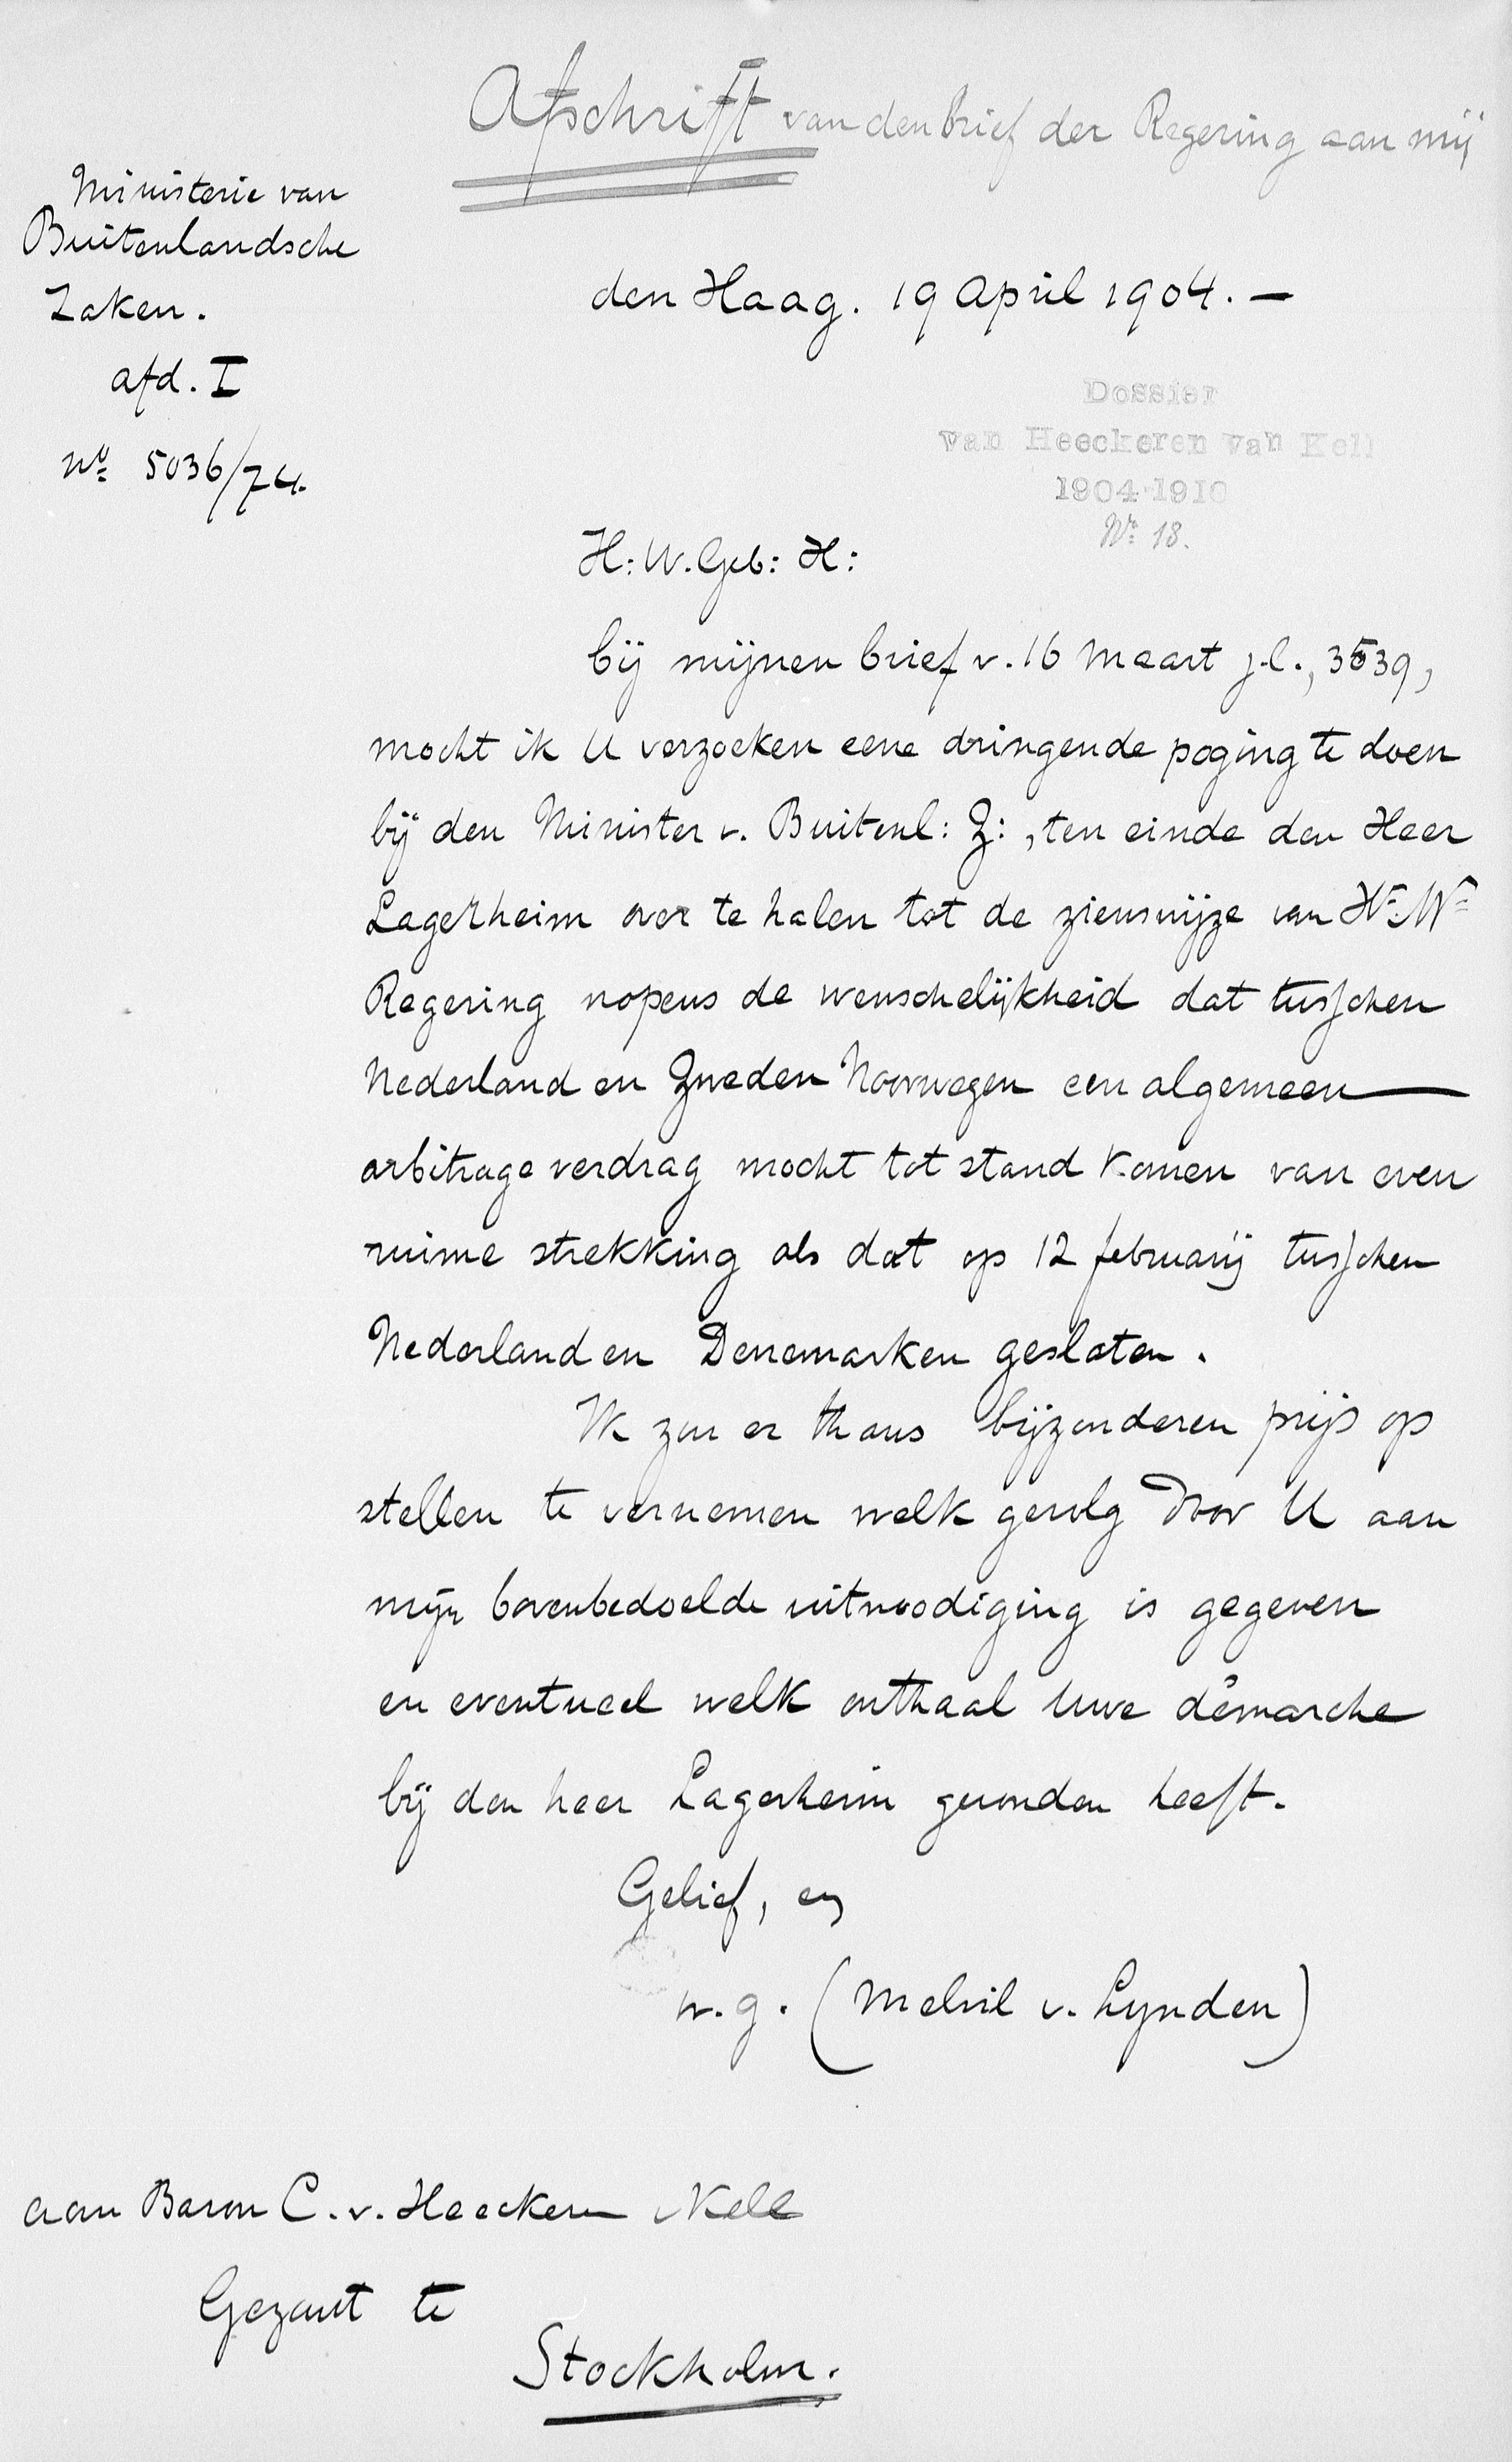 Afschrift van den brief der Regering aan mij
Ministerie van
Buitenlandsche
Zaken.
afd. I
No 5036/74.
den Haag. 19 April 1904. —
Dossier
van Heeckeren van Kell
1904-1910
No 18.
H: W. Geb: H:
bij mijnen brief v. 16 Maart j.l., 3539,
mocht ik U verzoeken eene dringende poging te doen
bij den Minister v. Buitenl: Z:, ten einde den Heer
Lagerheim over te halen tot de zienswijze van Hr. Ms
Regering nopens de wenschelijkheid dat tusschen
Nederland en Zweden Noorwegen een algemeen —
arbitrage verdrag mocht tot stand komen van even
ruime strekking als dat op 12 februarij tusschen
Nederland en Denemarken gesloten.
Ik zou er thans bijzonderen prijs op
stellen te vernemen welk gevolg door U aan
mijn bovenbedoelde uitnoodiging is gegeven
en eventueel welk onthaal Uwe démarche
bij den heer Lagerheim gevonden heeft.
Gelief, enz
w. g. (Melvil v. Lynden)
aan Baron C. v. Heeckeren v Kell
Gezant te
Stockholm.